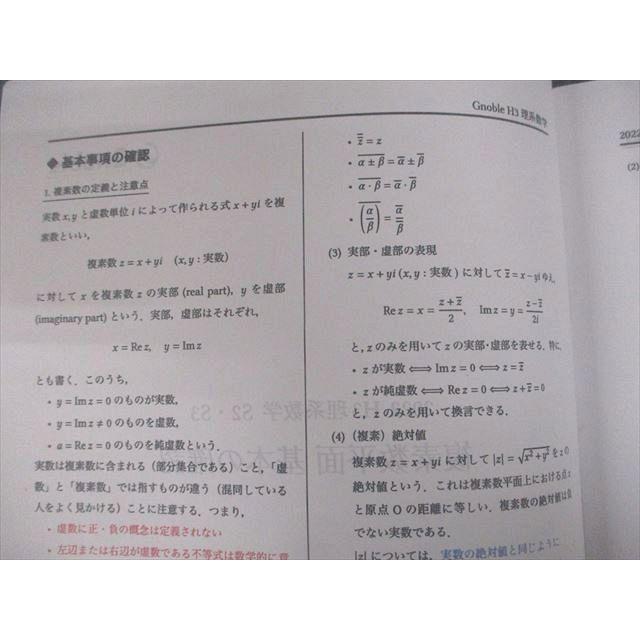 Gnoble H3 理系数学
◆ 基本事項の確認
1. 複素数の定義と注意点
実数 x, y と虚数単位 i によって作られる式 x + yi を複
素数といい,
複素数 z = x + yi (x, y : 実数)
に対して x を複素数 z の実部 (real part), y を虚部
(imaginary part) という. 実部, 虚部はそれぞれ,
x = Re z, y = Im z
とも書く. このうち,
• y = Im z = 0 のものが実数,
• y = Im z ≠ 0 のものを虚数,
• a = Re z = 0 のものを純虚数という.
実数は複素数に含まれる (部分集合である) こと, 「虚
数」と「複素数」では指すものが違う (混同している
人をよく見かける) ことに注意する. つまり,
• 虚数に正・負の概念は定義されない
• 左辺または右辺が虚数である不等式は数学的に意
• z̿ = z
• \overline{α ± β} = \overline{α} ± \overline{β}
• \overline{α · β} = \overline{α} · \overline{β}
• \overline{(α/β)} = \overline{α}/\overline{β}
(3) 実部・虚部の表現
z = x + yi (x, y : 実数) に対して z̄ = x − yi ゆえ,
Re z = x = (z + z̄)/2, Im z = y = (z − z̄)/2i
と, z のみを用いて z の実部・虚部を表せる. 特に,
• z が実数 ⟺ Im z = 0 ⟺ z = z̄
• z が純虚数 ⟺ Re z = 0 ⟺ z + z̄ = 0
と, z のみを用いて換言できる.
(4) (複素) 絶対値
複素数 z = x + yi に対して |z| = √(x² + y²) を z の
絶対値という. これは複素数平面上における点 z
と原点 O の距離に等しい. 複素数の絶対値は負
でない実数である.
|z| については, 実数の絶対値と同じように
2022
(2)